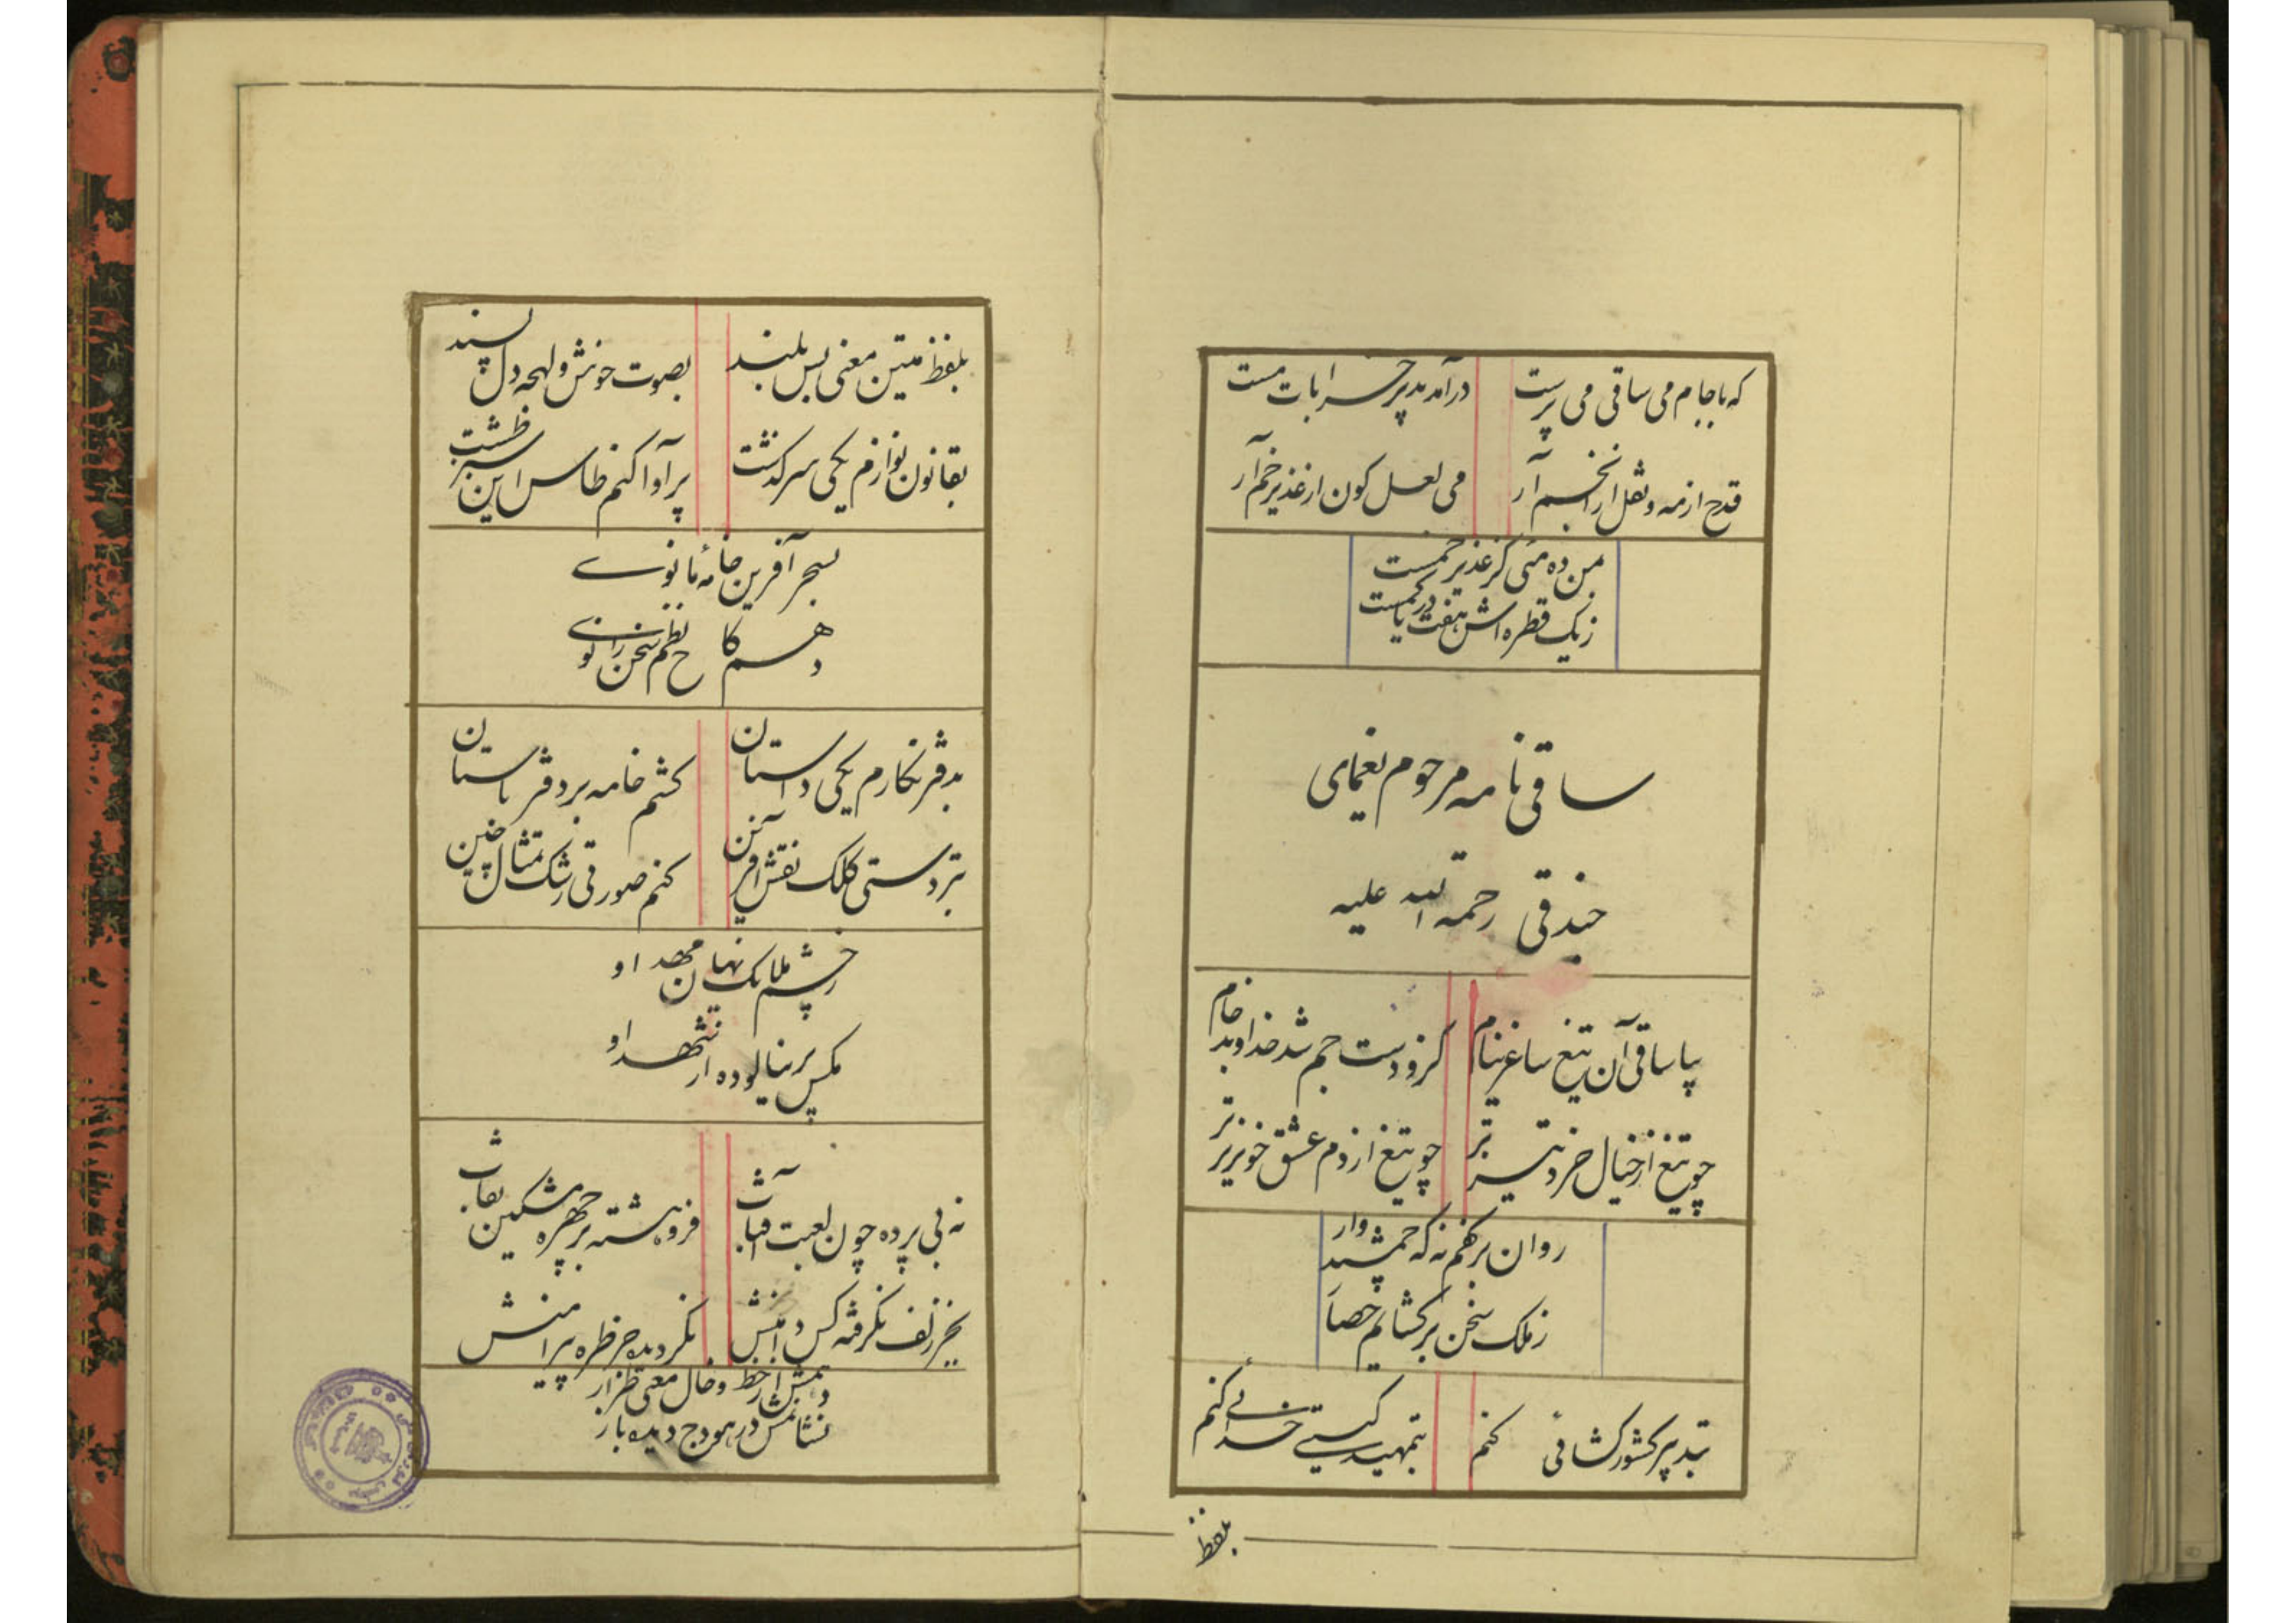 که با جام می ساقی می پرست
درآمد بدیر خرابات مست
قدح از مه و نقل از انجم آر
می لعل کون از غدیر خم آر
من ده مئی کز غدیر خمست
زیک قطره اش هفت دریا کمست
ساقی نامه مرحوم یغمای
جندقی رحمة الله علیه
بیا ساقی آن تیغ ساغر نیام
کزو دست جم شد خداوند جام
چو تیغ از خیال خرد تیز تر
چو تیغ از دم عشق خونریز تر
روان بر کفم نه که جمشید وار
زملک سخن بر کشایم حصار
بتدبیر کشور کشائی کنم
بتمهید کیتی خدائی کنم
بلفظ
بلفظ متین معنی بس بلند
بصوت خوش و لهجه دل پسند
بقانون نوازم یکی سرکذشت
پر آوا کنم طاس این سبز طشت
بسحر آفرین خامه مانوی
دهم کاخ نظم سخن را نوی
بدفتر نکارم یکی داستان
کشم خامه بر دفتر باستان
بتردستی کلک نقش آفرین
کنم صورتی رشک تمثال چین
ز چشم ملایک نهان مهد او
مکس پر نیالوده از شهد او
نه بی پرده چون لعبت آفتاب
فروهشته بر چهره مشکین نقاب
بجز زلف نکرفته کس دامنش
نکردیده جز طره پیرامنش
ز خط و خال معنی طراز
نشانمش در هودج دیده باز